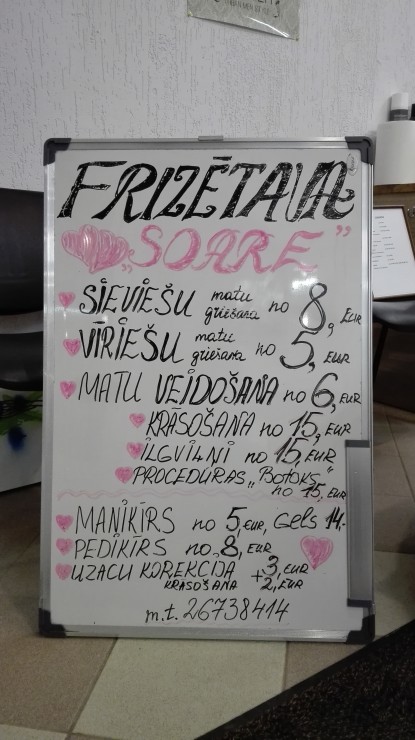 FRIZĒTAVA
„SOARE”
SIEVIEŠU matu griešana no 8, EUR
VĪRIEŠU matu griešana no 5, EUR
MATU VEIDOŠANA no 6, EUR
KRĀSOŠANA no 15, EUR
ILGVIĻŅI no 15, EUR
PROCEDŪRAS „Botoks”
no 15, EUR
MANIKĪRS no 5, EUR, Gels 14,-
PEDIKĪRS no 8, EUR
UZACU KOREKCIJA +3, EUR
KRĀSOŠANA 2, EUR
m.t. 26738414